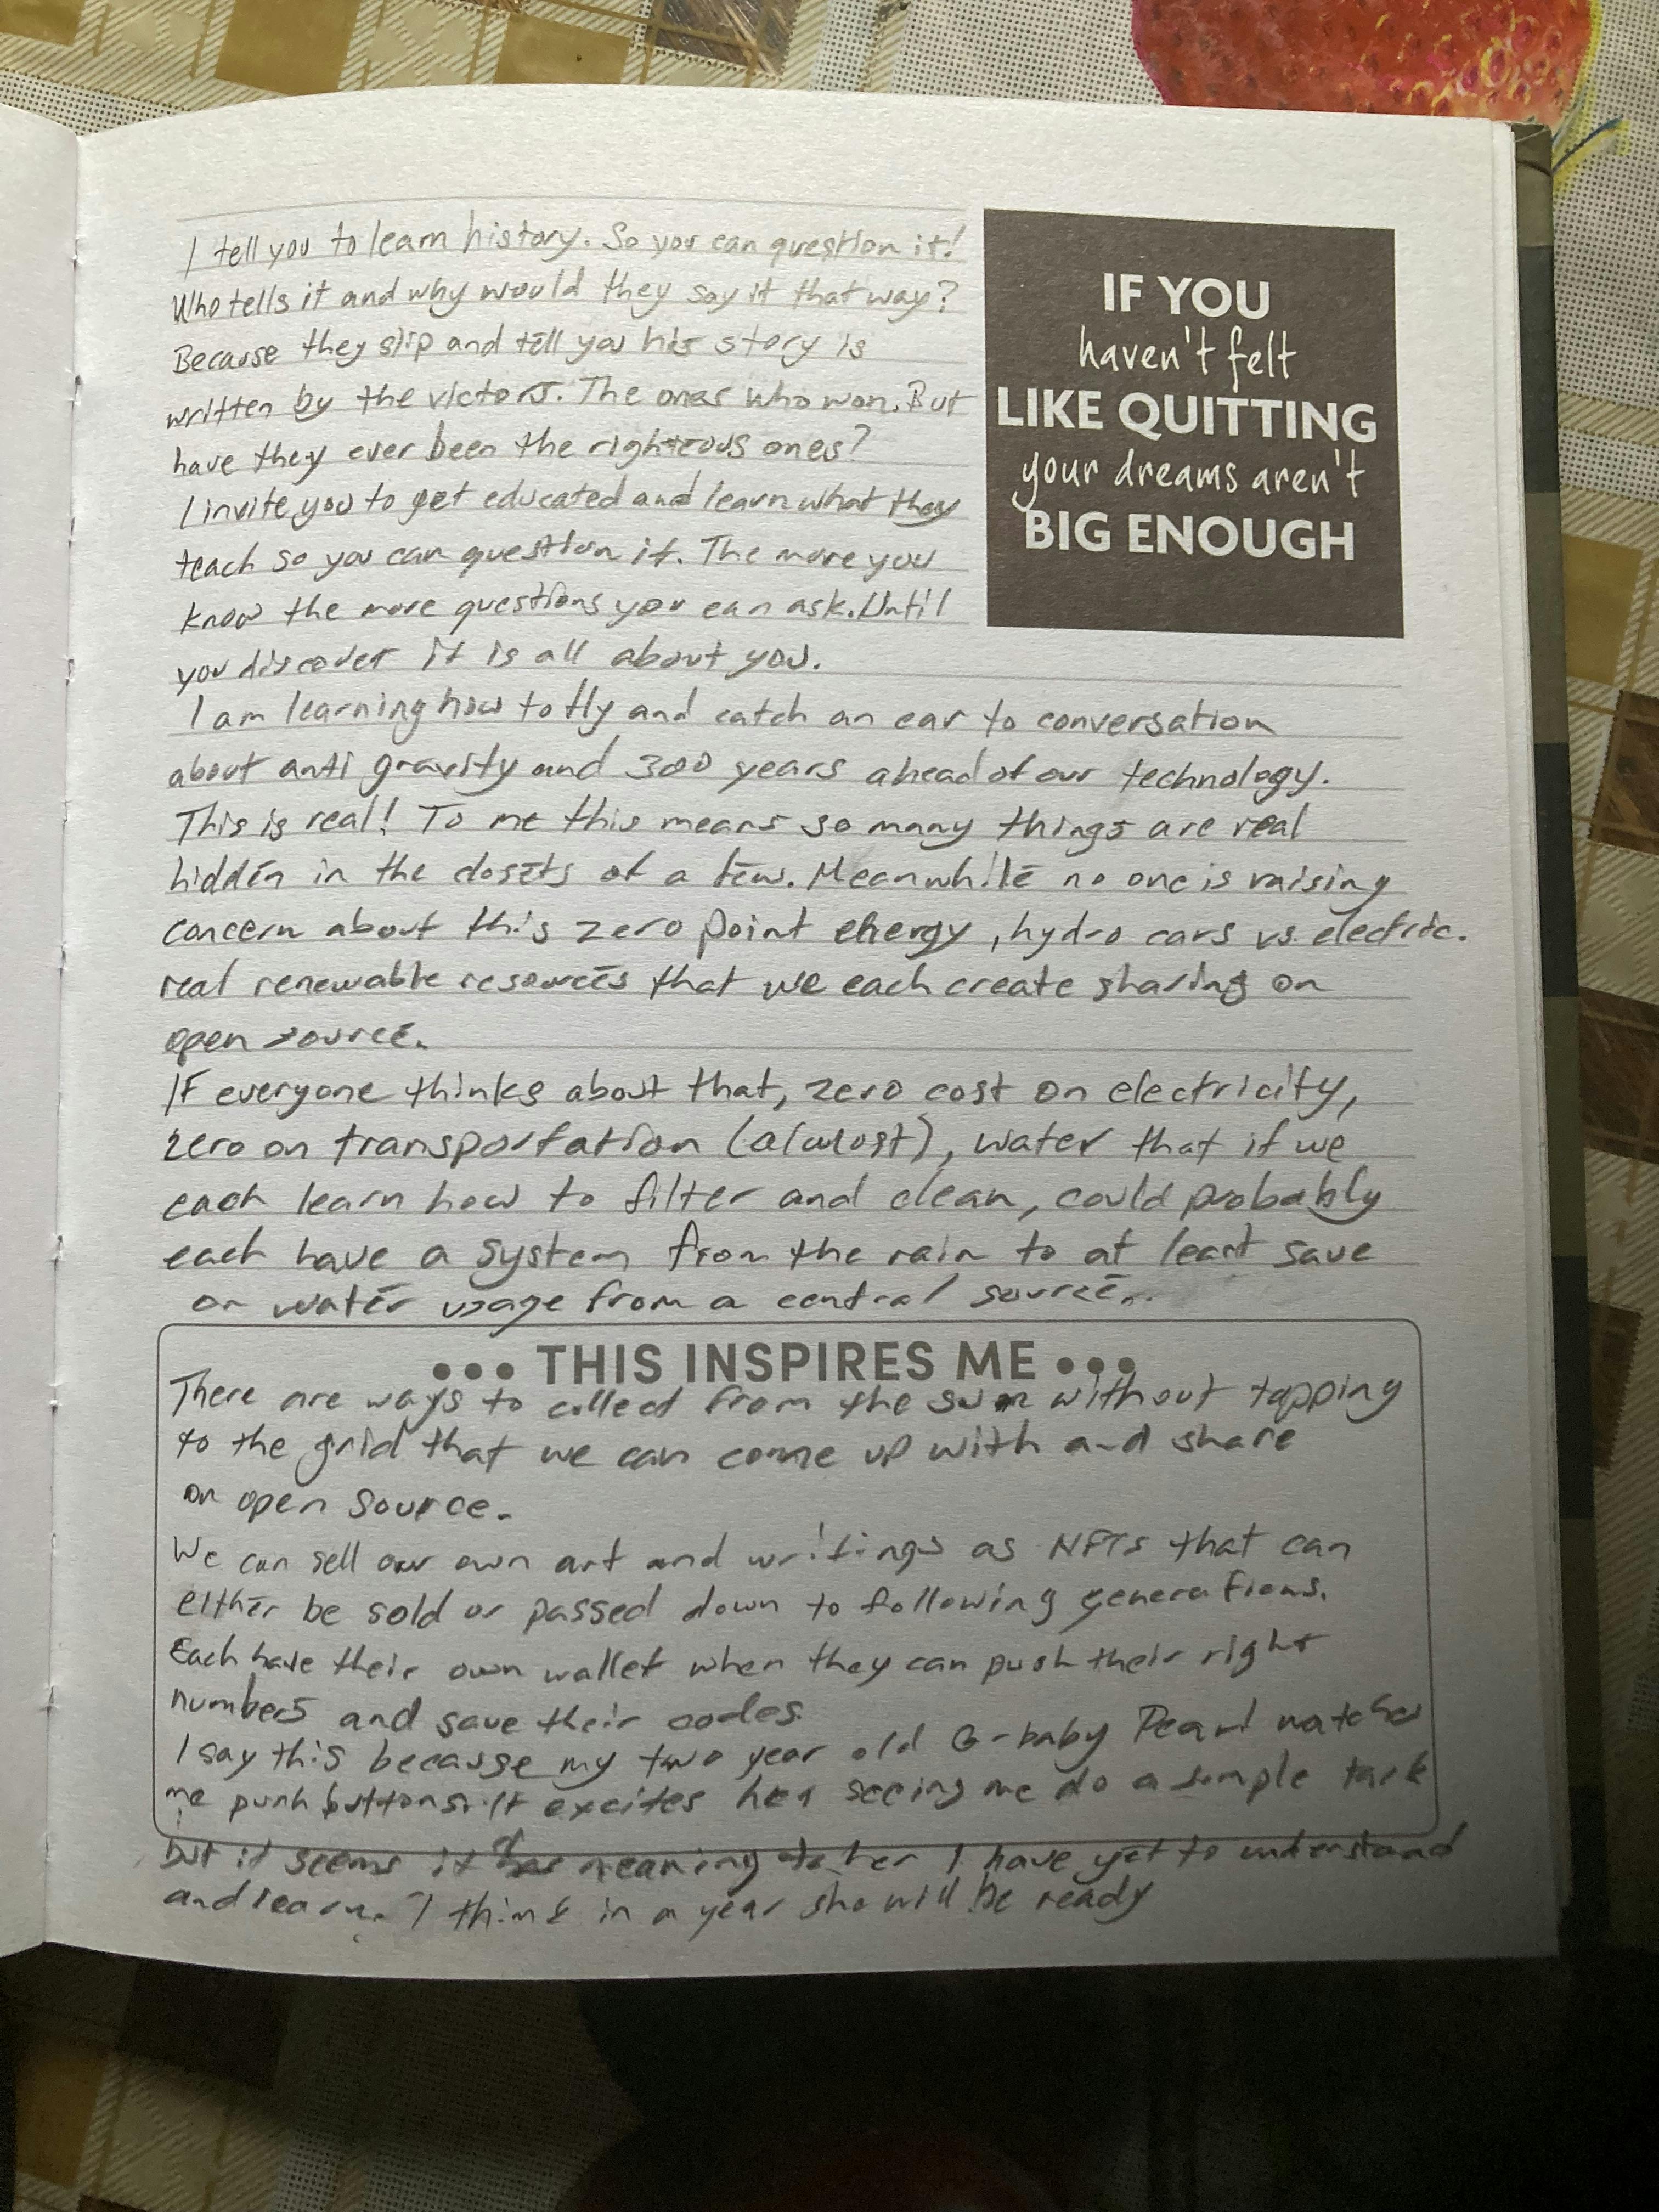 I tell you to learn history. So you can question it!
Who tells it and why would they say it that way?
Because they slip and tell you his story is
written by the victors. The ones who won. But
have they ever been the righteous ones?
I invite you to get educated and learn what they
teach so you can question it. The more you
know the more questions you can ask. Until
you discover it is all about you.
IF YOU
haven't felt
LIKE QUITTING
your dreams aren't
BIG ENOUGH
I am learning how to fly and catch an ear to conversation
about anti gravity and 300 years ahead of our technology.
This is real! To me this means so many things are real
hidden in the closets of a few. Meanwhile no one is raising
concern about this zero point energy, hydro cars vs. electric.
real renewable resources that we each create sharing on
open source.
If everyone thinks about that, zero cost on electricity,
zero on transportation (almost), water that if we
each learn how to filter and clean, could probably
each have a system from the rain to at least save
on water usage from a central source...
••• THIS INSPIRES ME •••
There are ways to collect from the sun without tapping
to the grid that we can come up with and share
on open source.
We can sell our own art and writings as NFTs that can
either be sold or passed down to following generations.
Each have their own wallet when they can push their right
numbers and save their codes.
I say this because my two year old G-baby Pearl watches
me push buttons. It excites her seeing me do a simple task
but it seems it has meaning to her I have yet to understand
and learn. I think in a year she will be ready